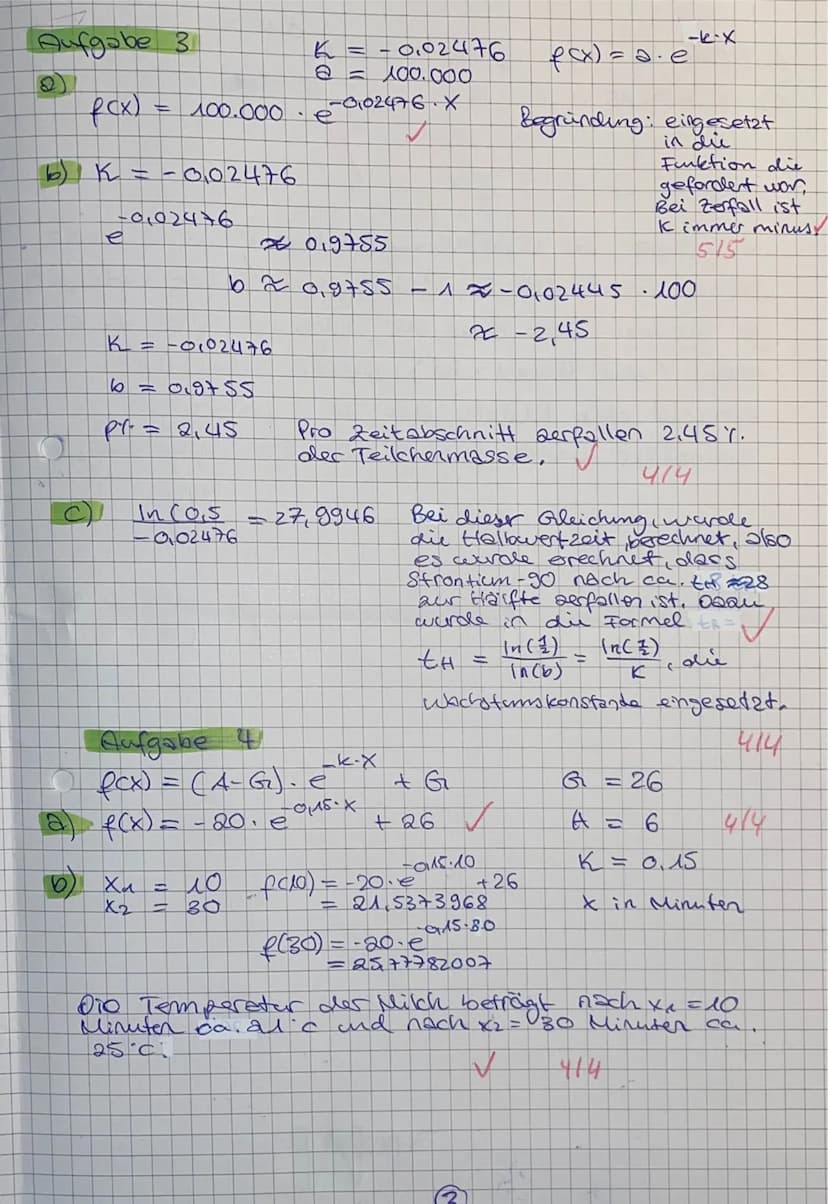 Aufgabe 3
K = -0,02476
a = 100.000
f(x) = a · e^-k·x
a)
f(x) = 100.000 · e^-0,02476 · x ✓
Begründung: eingesetzt
in die
Funktion die
gefordert war.
Bei Zerfall ist
K immer minus ✓
5/5
b) K = -0,02476
e^-0,02476 ≈ 0,9755
b ≈ 0,9755 - 1 ≈ -0,02445 · 100
≈ -2,45
K = -0,02476
b = 0,9755
p% = 2,45
Pro Zeitabschnitt zerfallen 2,45%
der Teilchenmasse. ✓
4/4
c) ln(0,5 / -0,02476 = 27,9946
Bei dieser Gleichung, wurde
die Halbwertzeit berechnet, also
es wurde errechnet, dass
Strontium-90 nach ca. tH ≈ 28
zur Hälfte zerfallen ist. Dazu
wurde in die Formel ✓
tH = ln(1/2) / ln(b) = ln(1/2) / K, die
Wachstumskonstande eingesetzt.
4/4
Aufgabe 4
f(x) = (A-G) · e^-k·x + G
G = 26
a) f(x) = -20 · e^-0,15·x + 26 ✓
A = 6
4/4
K = 0,15
b) x1 = 10
x2 = 30
f(10) = -20 · e^-0,15·10 + 26
= 21,5373968
x in Minuten
f(30) = -20 · e^-0,15·30
= 25,77782007
Die Temperatur der Milch beträgt nach x1 = 10
Minuten ca. 21°C und nach x2 = 30 Minuten ca.
25°C.
✓ 4/4
2